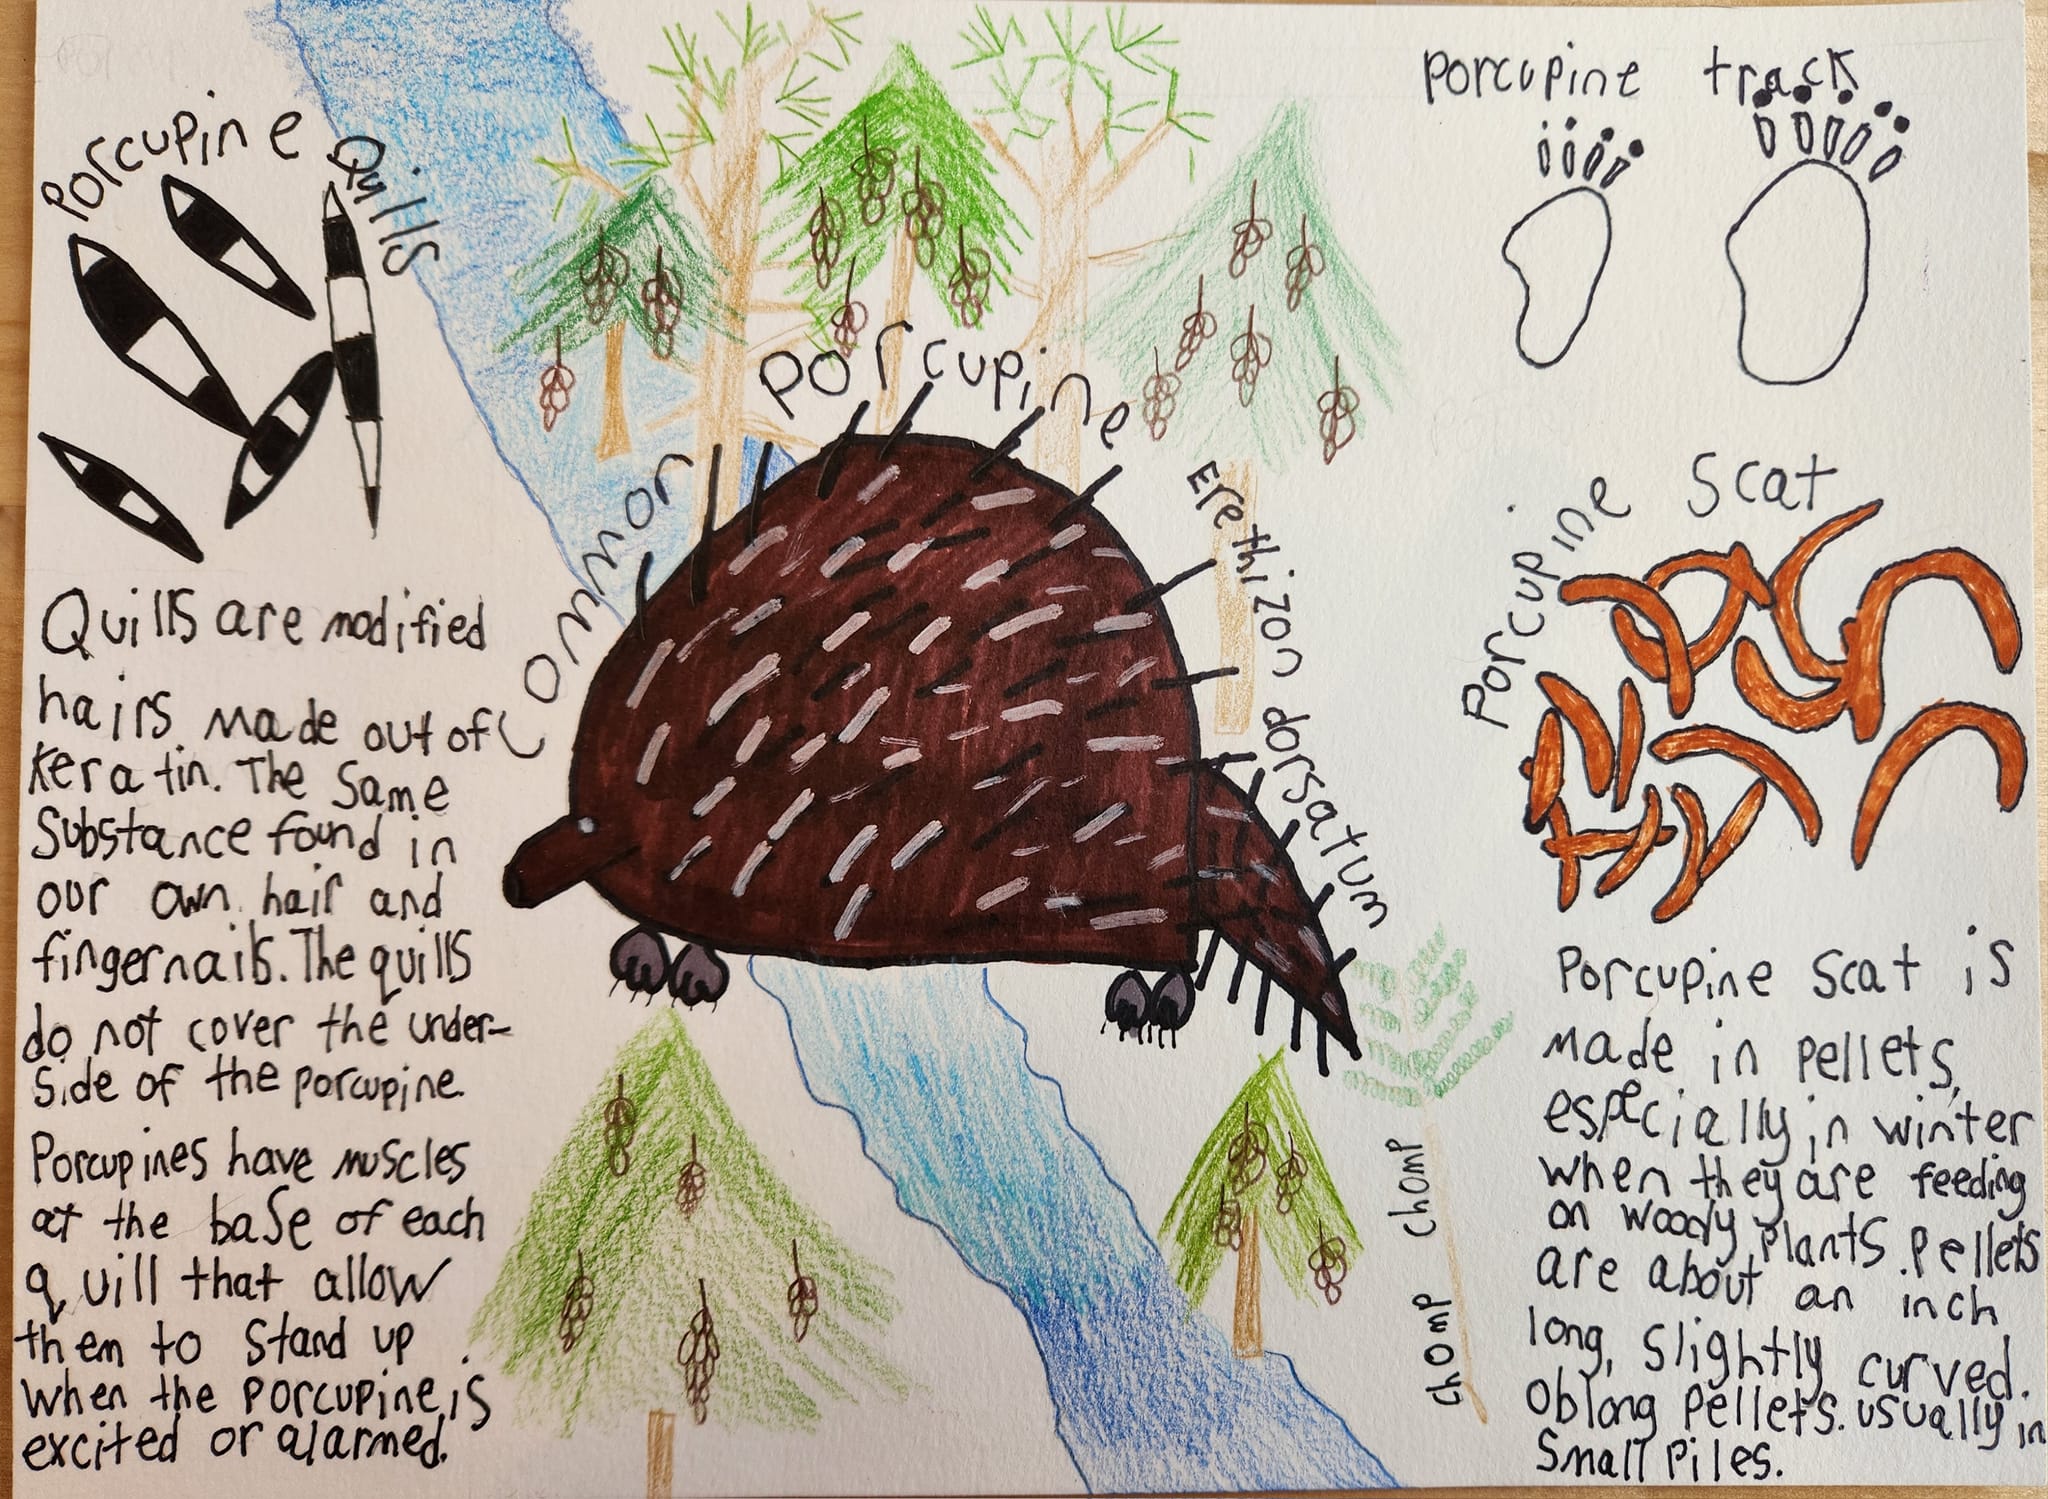 Porcupine Quills
Quills are modified
hairs made out of
keratin. The same
substance found in
our own hair and
fingernails. The quills
do not cover the under-
side of the porcupine.
Porcupines have muscles
at the base of each
quill that allow
them to stand up
when the porcupine is
excited or alarmed.
Common Porcupine
Erethizon dorsatum
chomp chomp
Porcupine track
Porcupine Scat
Porcupine scat is
made in pellets,
especially in winter
when they are feeding
on woody plants. Pellets
are about an inch
long, slightly curved.
oblong pellets. usually in
small piles.